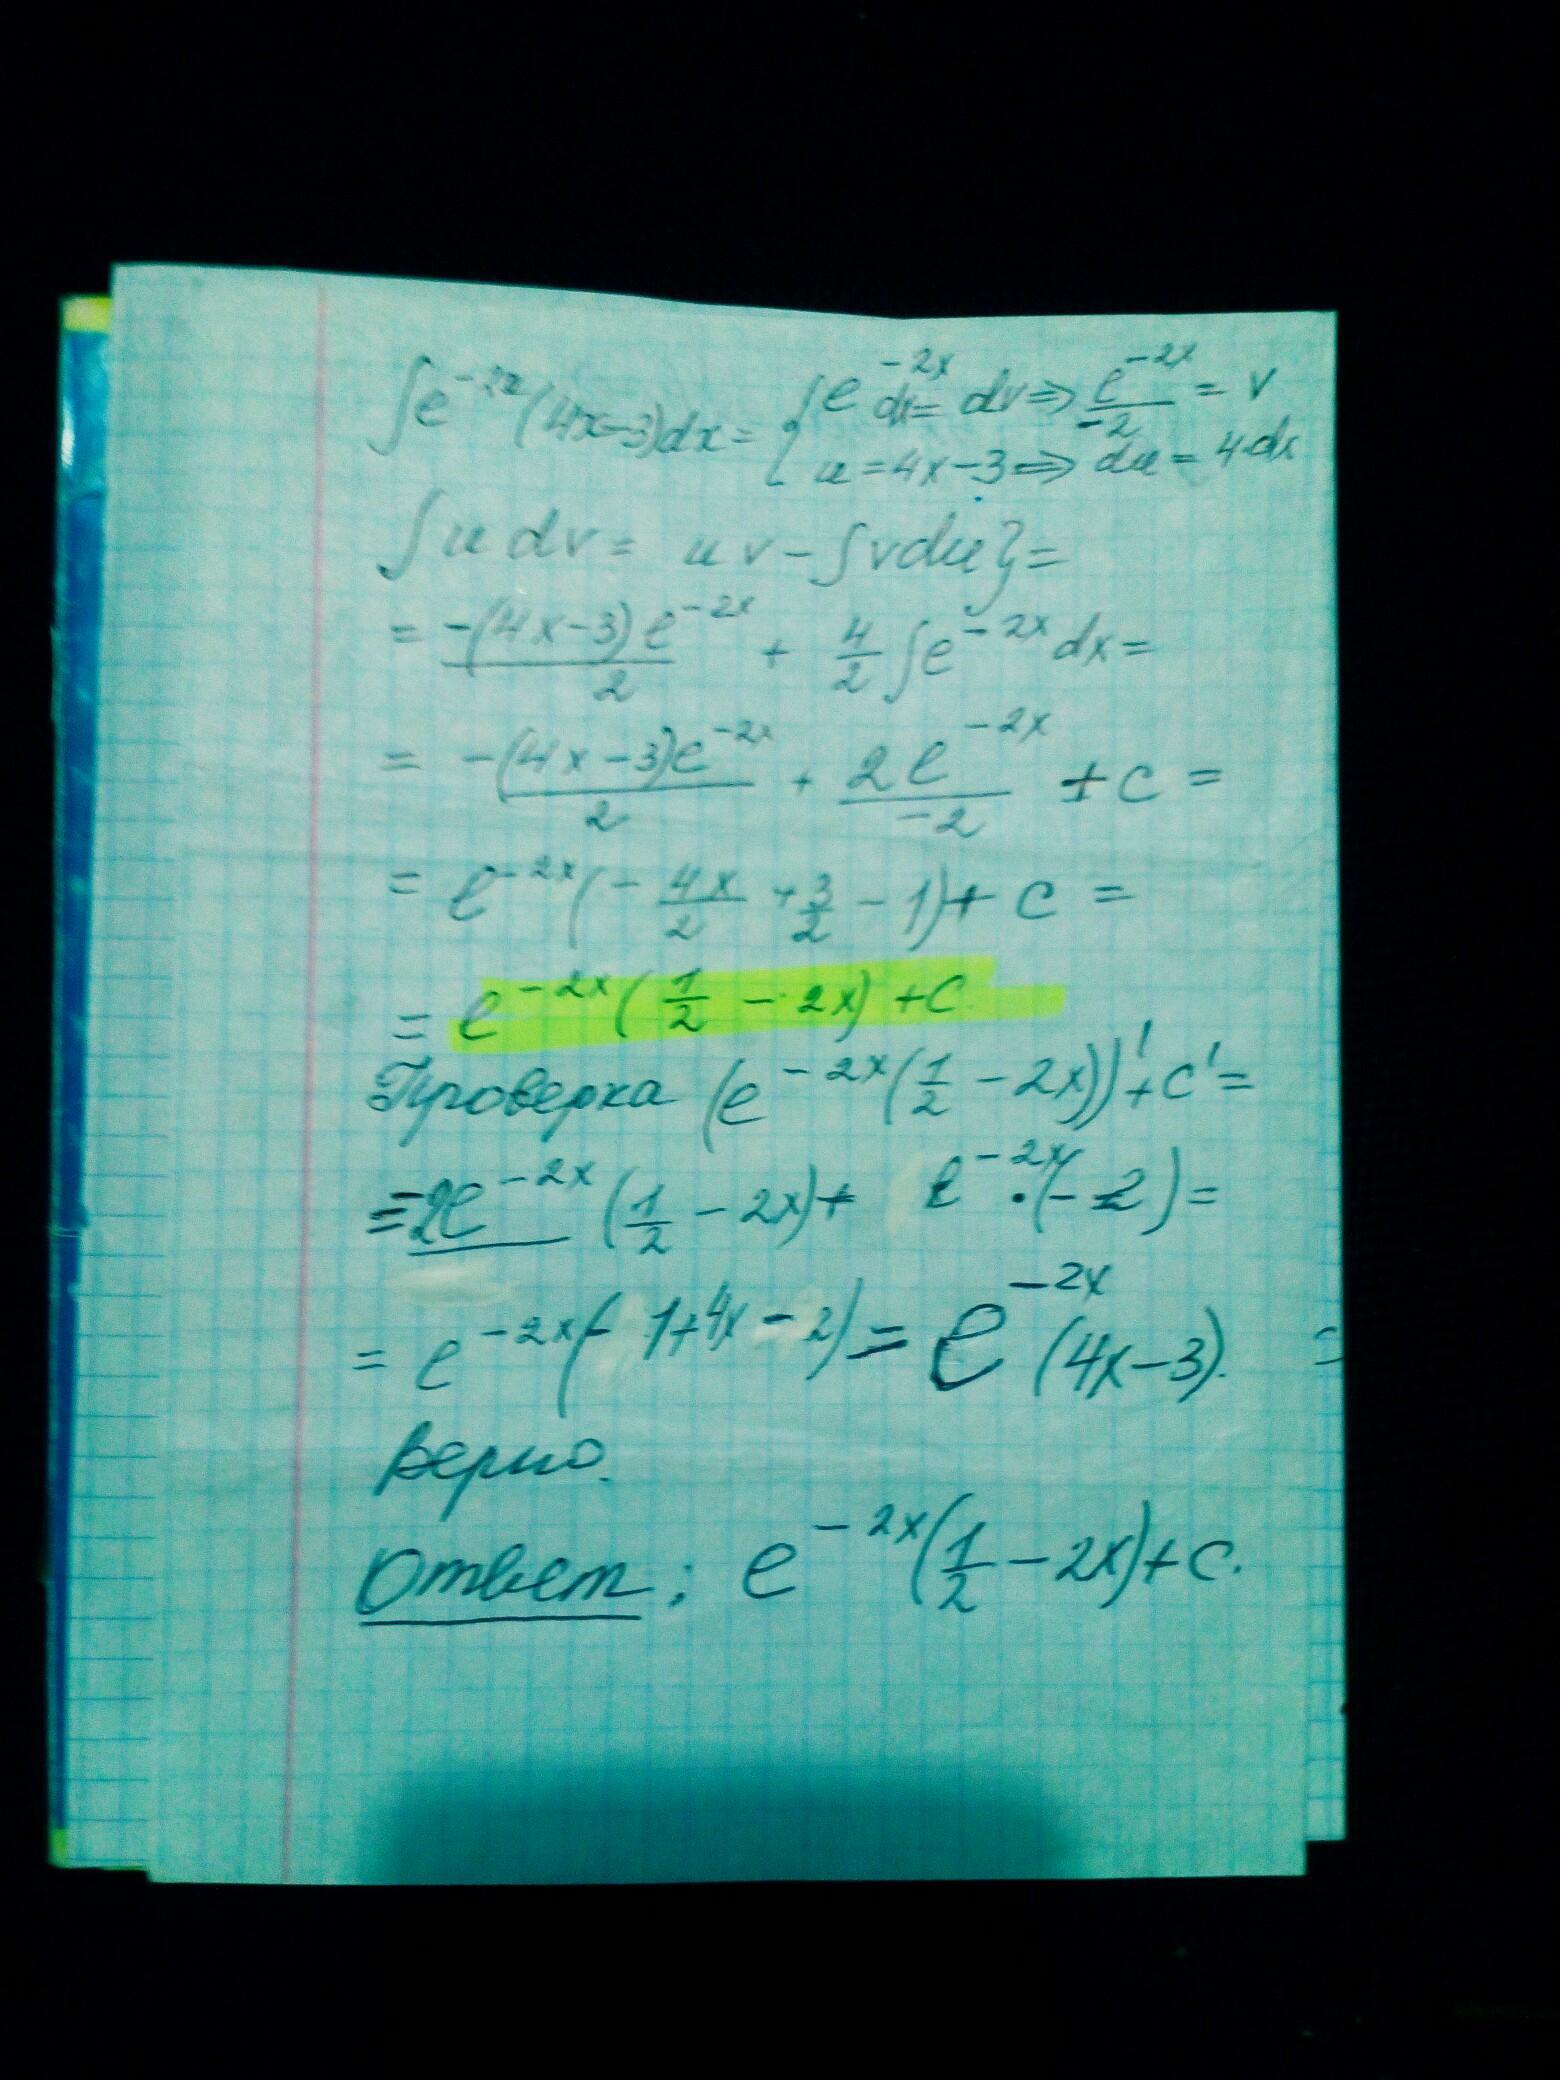 ∫e^{-2x}(4x-3)dx = { e^{-2x} dx = dv ⇒ e^{-2x}/-2 = v
u = 4x-3 ⇒ du = 4·dx
∫u dv = uv - ∫vdu} =
= -(4x-3)e^{-2x}/2 + 4/2 ∫e^{-2x} dx =
= -(4x-3)e^{-2x}/2 + 2e^{-2x}/-2 + c =
= e^{-2x}(-4x/2 + 3/2 - 1) + c =
= e^{-2x}(1/2 - 2x) + c.
Проверка (e^{-2x}(1/2 - 2x))' + c' =
= -2e^{-2x}(1/2 - 2x) + e^{-2x}·(-2) =
= e^{-2x}(-1+4x-2) = e^{-2x}(4x-3). =
Верно.
Ответ: e^{-2x}(1/2 - 2x) + c.